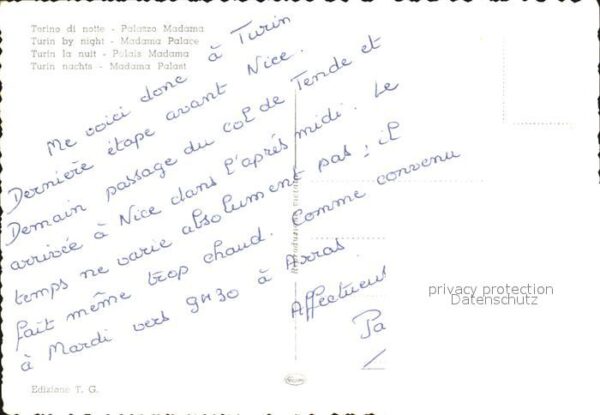 Torino di notte - Palazzo Madama
Turin by night - Madama Palace
Turin la nuit - Palais Madama
Turin nachts - Madama Palast
Me voici donc à Turin
Dernière étape avant Nice.
Demain passage du col de Tende et
arrivée à Nice dans l'après midi. Le
temps ne varie absolument pas : il
fait même trop chaud. Comme convenu
à Mardi vers 9H30 à Arras.
Affectueus
Pa
Edizione T. G.
privacy protection
Datenschutz